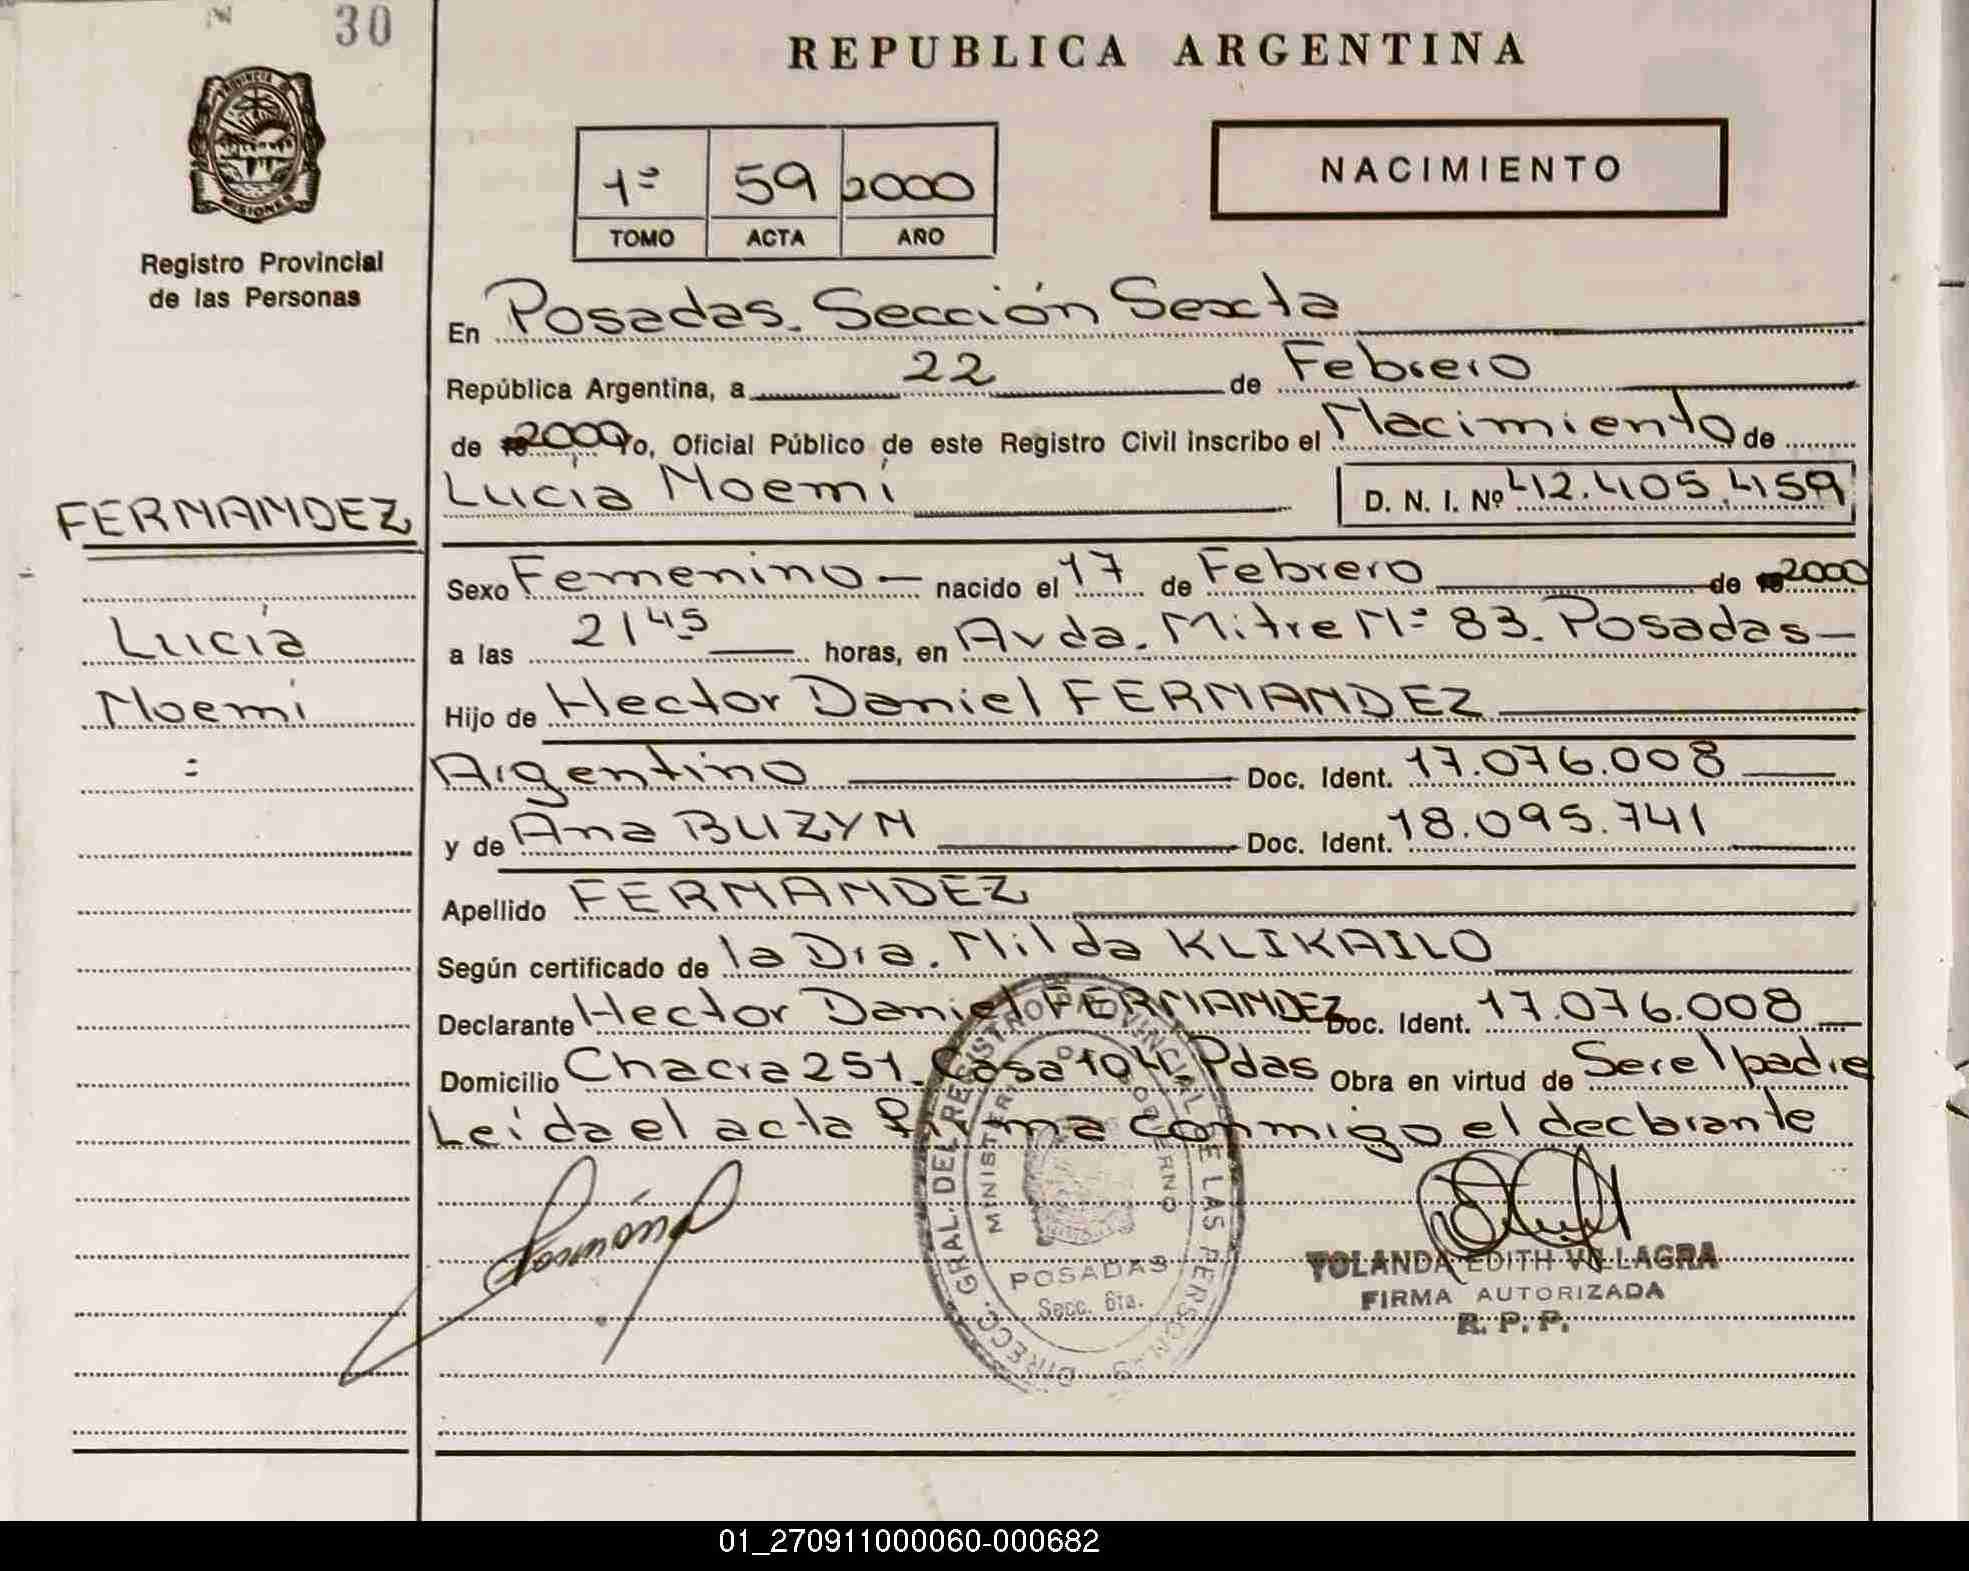 30
REPUBLICA ARGENTINA
PROVINCIA
MISIONES
Registro Provincial
de las Personas
1º 59 2000
TOMO ACTA AÑO
NACIMIENTO
En Posadas. Sección Sexta
República Argentina, a 22 de Febrero
de 2000 Yo, Oficial Público de este Registro Civil inscribo el Nacimiento de
Lucía Noemí D. N. I. Nº 42.405.459
FERNANDEZ
Lucía
Noemí
Sexo Femenino nacido el 17 de Febrero de 2000
a las 21 45 horas, en Avda. Mitre Nº 83. Posadas
Hijo de Hector Daniel FERNANDEZ
Argentino Doc. Ident. 17.076.008
y de Ana BUZYN Doc. Ident. 18.095.741
Apellido FERNANDEZ
Según certificado de la Dra. Nilda KLIKAILO
Declarante Hector Daniel FERNANDEZ Doc. Ident. 17.076.008
Domicilio Chacra 251. Casa 104. Pdas Obra en virtud de Ser el padre
Leída el acta firma conmigo el declarante
DIRECC. GRAL. DEL REGISTRO PROVINCIAL DE LAS PERSONAS
MINISTERIO DE GOBIERNO
POSADAS
Secc. 6ta.
YOLANDA EDITH VILLAGRA
FIRMA AUTORIZADA
R. P. P.
01_270911000060-000682